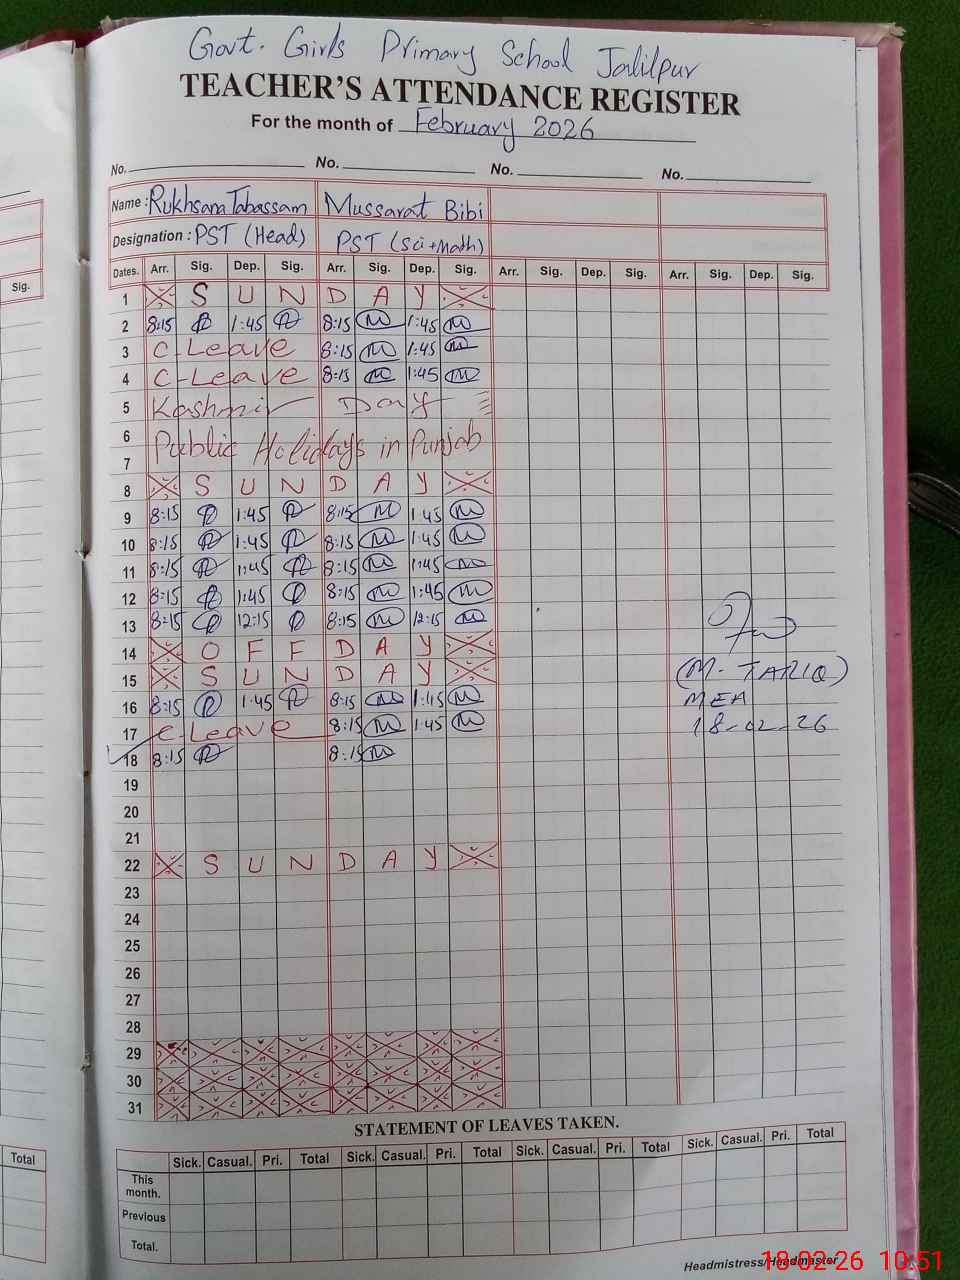 Govt. Girls Primary School Jalilpur
TEACHER'S ATTENDANCE REGISTER
For the month of February 2026
No. No. No. No.
Name : Rukhsana Tabassam Mussarat Bibi
Designation : PST (Head) PST (Sci+Math)
Dates. Arr. Sig. Dep. Sig. Arr. Sig. Dep. Sig. Arr. Sig. Dep. Sig. Arr. Sig. Dep. Sig.
Sig.
1 S U N D A Y
2 8:15 1:45 8:15 1:45
3 C-Leave 8:15 1:45
4 C-Leave 8:15 1:45
5 Kashmir Day
6 Public Holidays in Punjab
7
8 S U N D A Y
9 8:15 1:45 8:15 1:45
10 8:15 1:45 8:15 1:45
11 8:15 1:45 8:15 1:45
12 8:15 1:45 8:15 1:45
13 8:15 12:15 8:15 12:15
14 O F F D A Y
15 S U N D A Y
(M. TARIQ)
16 8:15 1:45 8:15 1:45
MEA
17 C-Leave 8:15 1:45
18-02-26
18 8:15 8:15
19
20
21
22 S U N D A Y
23
24
25
26
27
28
29
30
31
STATEMENT OF LEAVES TAKEN.
Total
Sick. Casual. Pri. Total Sick. Casual. Pri. Total Sick. Casual. Pri. Total Sick. Casual. Pri. Total
This month.
Previous
Total.
Headmistress/Headmaster
18-02-26 10:51